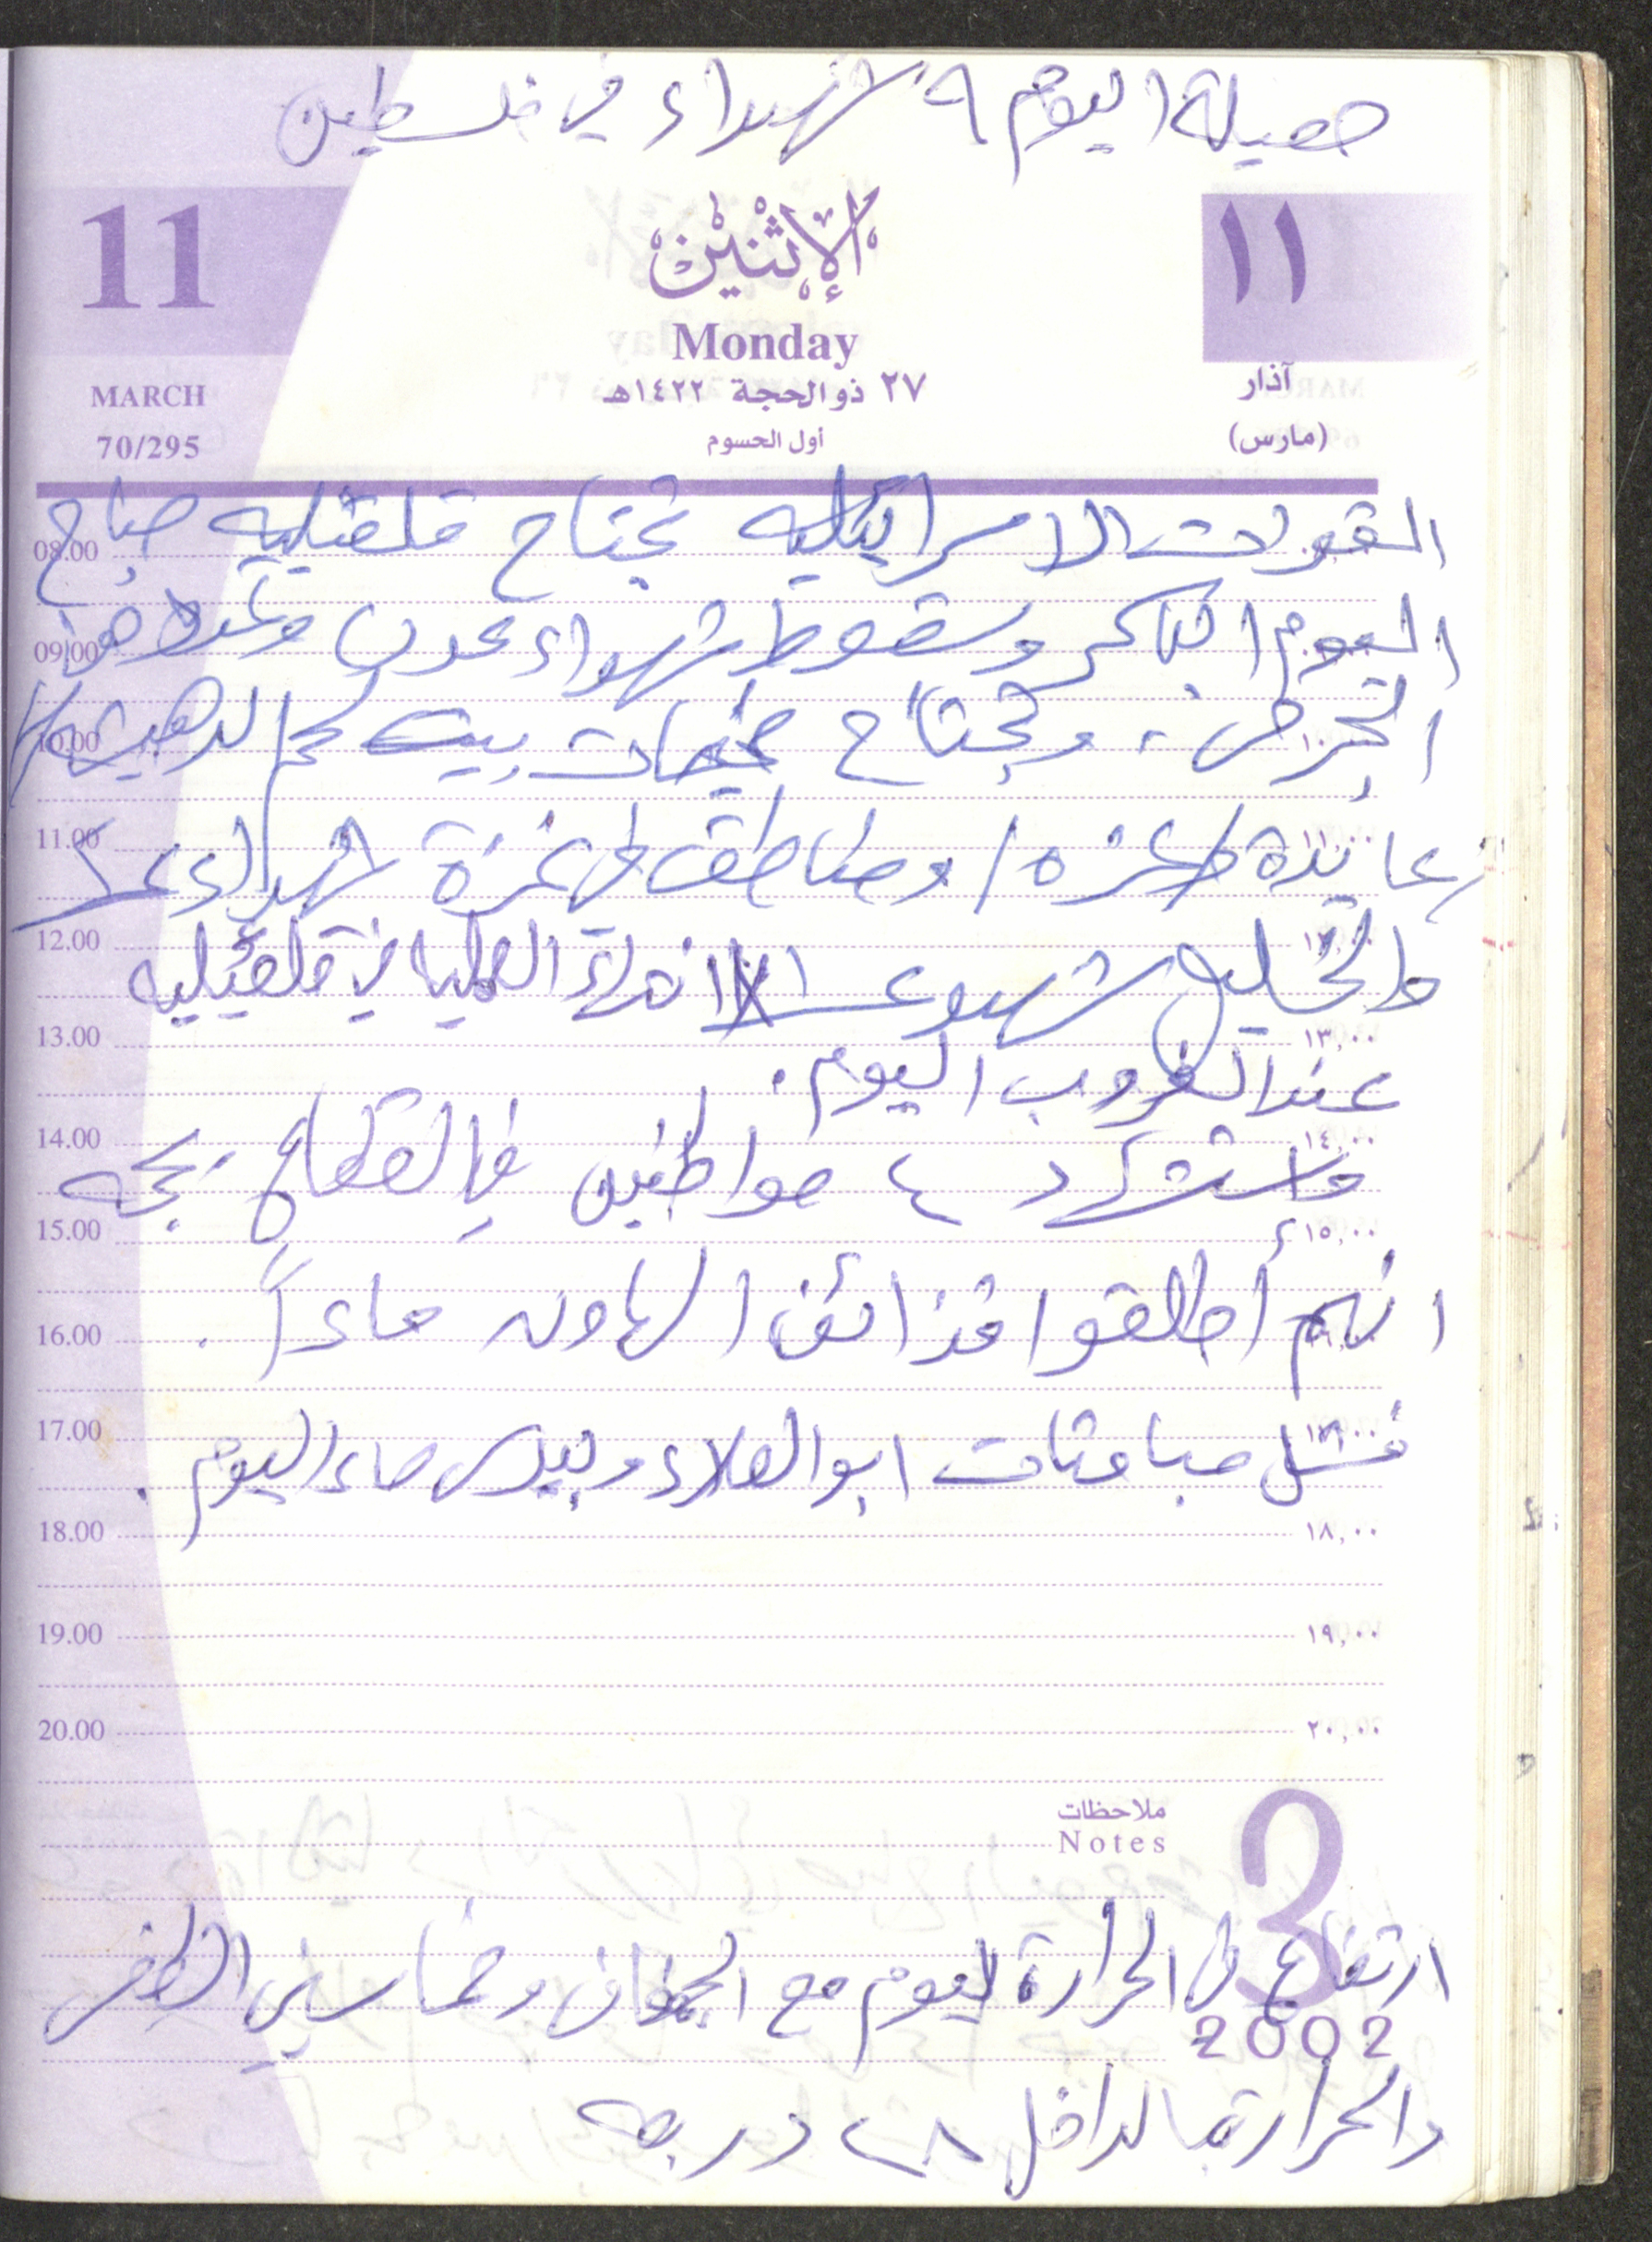 حصيلة اليوم ٩ شهداء في فلسطين
11
الإثنين
١١
Monday
MARCH
٢٧ ذو الحجة ١٤٢٢هـ
آذار
70/295
أول الحسوم
(مارس)
القوات الاسرائيليه تجتاح قلقيليه صباح
08.00
اليوم الباكر وسقوط شهداء عدد وعدد من
09.00
الجرحى، وتجتاح مخيمات بيت لحم الدهيشة/
10.00
عايدة العزه/ ومناطق في غزة شهداء عدد
11.00 ١١,٠٠
والخليل شهيد عدد ١ الانزال العليا في قلقيليه
12.00 ١٢,٠٠
13.00 ١٣,٠٠
عند الغروب اليوم.
14.00 ١٤,٠٠
واستشهد ٤ مواطنين في القطاع بحجه
15.00 ١٥,٠٠
انهم أطلقوا قذائف الهاون مساءاً.
16.00
17.00 ١٧,٠٠
فشل مباحثات ابو العلاء وبيرس مساء اليوم.
18.00 ١٨,٠٠
19.00 ١٩,٠٠
20.00 ٢٠,٠٠
ملاحظات
Notes
3
ارتفاع في الحرارة اليوم مع الجفاف وخماسيني الطقس
2002
والحرارة بالداخل ٢٨ درجه